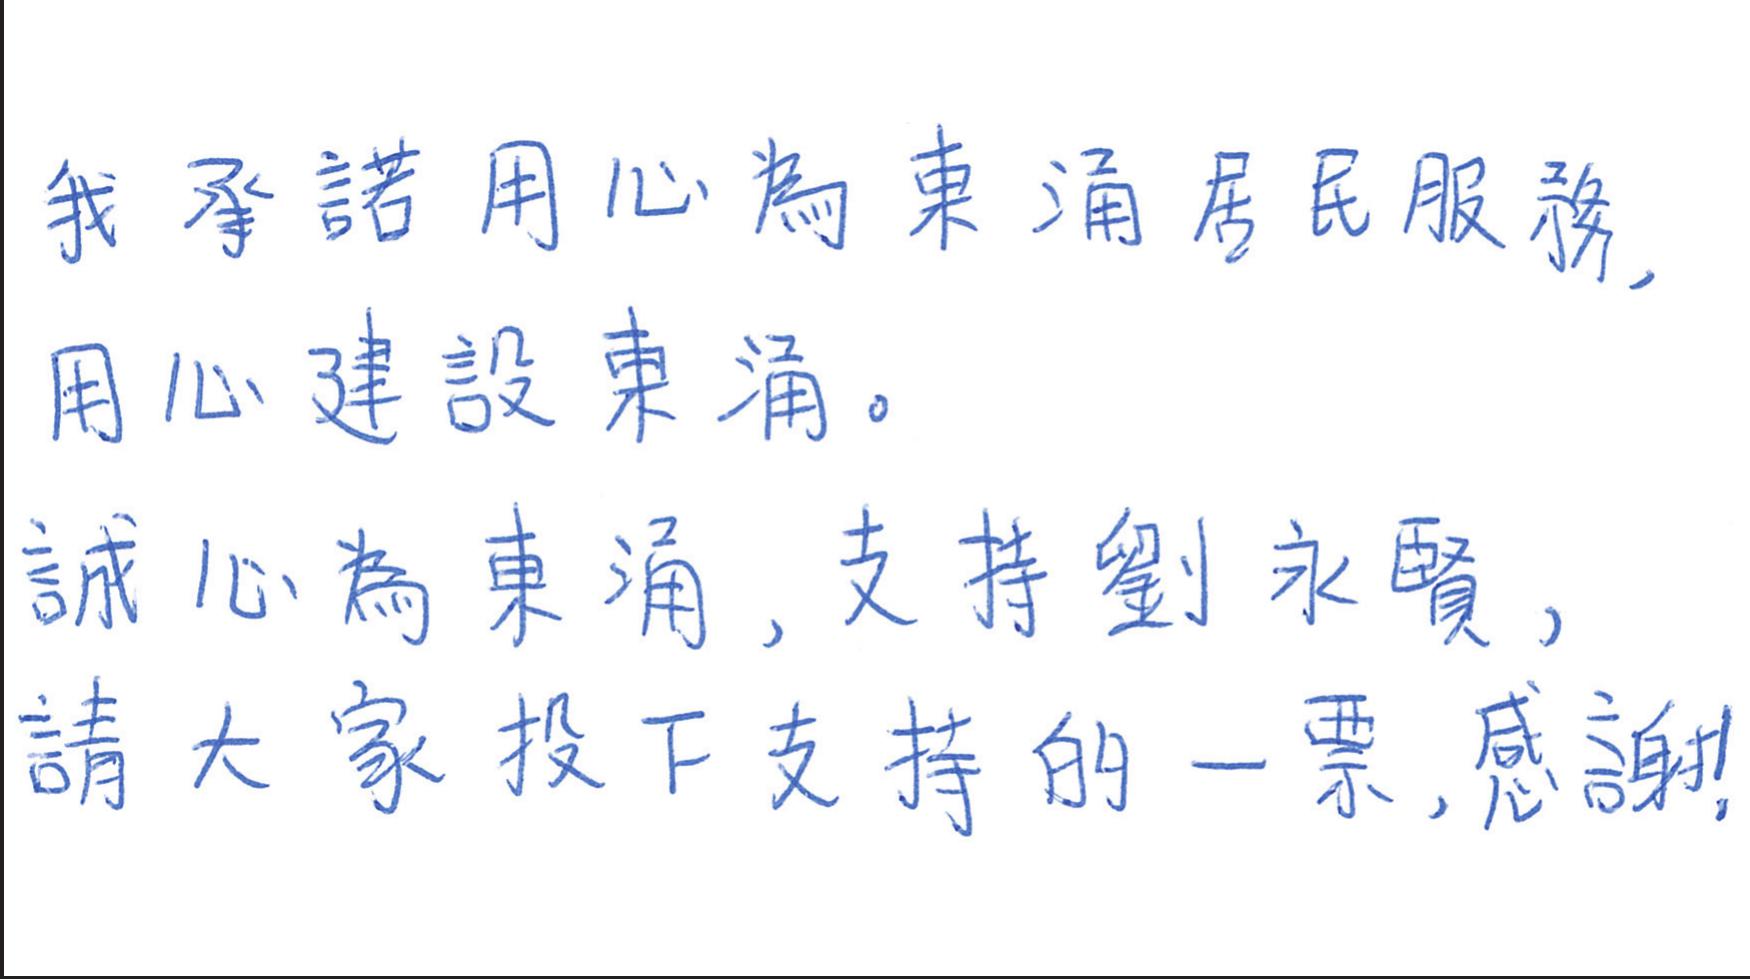 我承諾用心為東涌居民服務,
用心建設東涌。
誠心為東涌,支持劉永賢,
請大家投下支持的一票,感謝!